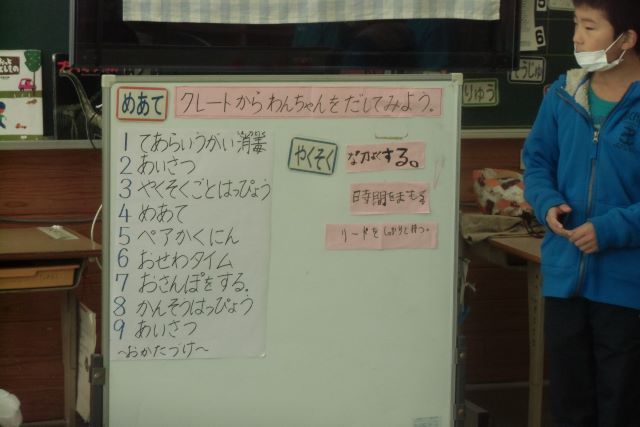 めあて クレートからわんちゃんをだしてみよう。
1 てあらいうがい消毒
2 あいさつ
3 やくそくごとはっぴょう
4 めあて
5 ペアかくにん
6 おせわタイム
7 おさんぽをする。
8 かんそうはっぴょう
9 あいさつ
～おかたづけ～
やくそく なかよくする。
時間をまもる
リードをしっかりと持つ。
りゅう